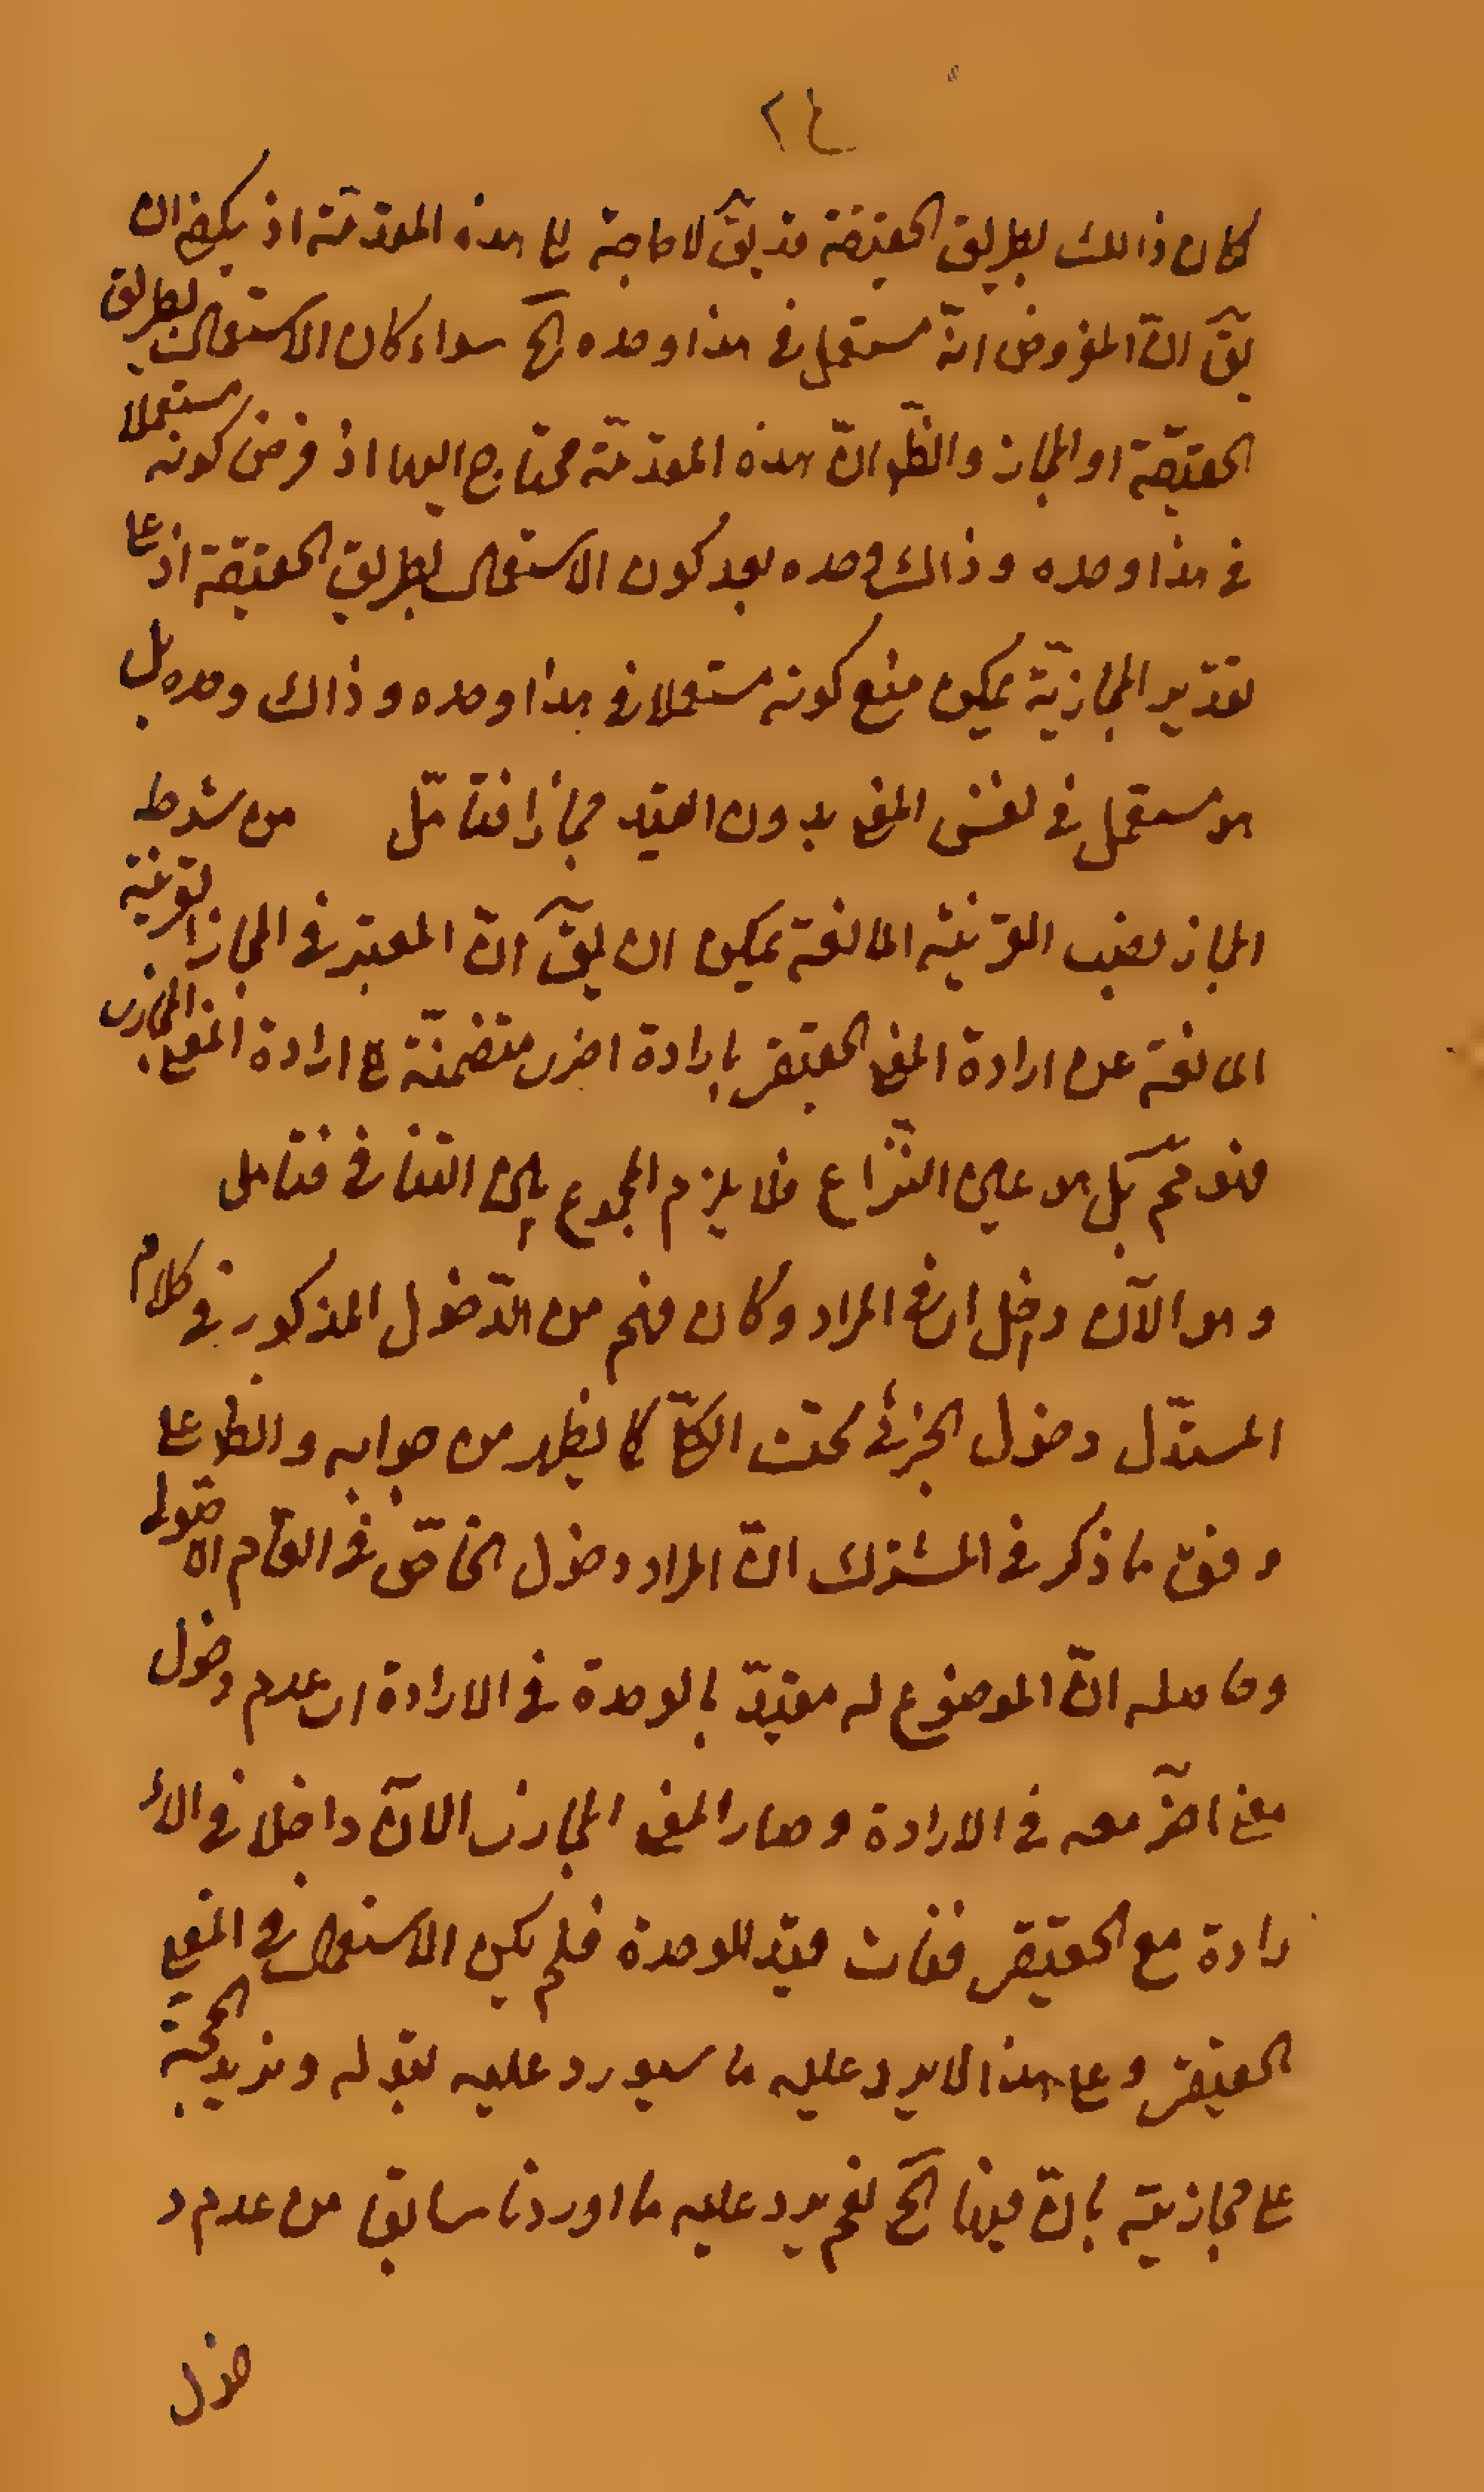 ٢٤
كان ذالك بطريق الحقيقة قد يقٓ لا حاجة الى هذه المقدّمة اذ يكفى ان
يقٓ انّ المفروض انّه مستعمل فى هذا وحده الخ سواء كان الاستعمال بطريق
الحقيقة او المجاز والظّ انّ هذه المقدّمة محتاج اليها اذ فرض كونه مستعملا
فى هذا وحده وذالك وحده بعد كون الاستعمال بطريق الحقيقة اذ على
تقدير المجازيّة يمكن منع كونه مستعملا فى هذا وحده وذاك وحده بل
هو مستعمل فى نفس المعنى بدون القيد مجازا فتامّل من شرط
المجاز نصب القرينة المانعة يمكن ان يقٓ انّ المعتبر فى المجاز القرينة
المانعة عن ارادة المعنى الحقيقى بارادة اخرى متضمنّة الى ارادة المعنى المجازى
فتوهّم بل هو عين النّزاع فلا يلزم المجموع بين التنافى فتامل
وهو الآن داخل اى فى المراد وكان فهم من الدّخول المذكور فى كلام
المستدّل دخول الجزئى تحت الكلّى كما يظهر من جوابه والظ على
وفق ما ذكر فى المشترك انّ المراد دخول الخاصّ فى العامّ الاصولى
وحاصله انّ الموضوع له مقيّد بالوحدة فى الارادة اى عدم دخول
معنى اخر معه فى الارادة وصار المعنى المجازى الآن داخلا فى الا
رادة مع الحقيقى ففات قيد الوحدة فلم يكن الاستعمال فى المعنى
الحقيقى وعلى هذا لا يرد عليه ما سيورد عليه بقوله ونزيد الحجّة
على مجازيته بانّ فيها الخ نعم يرد عليه ما اوردنا سابقا من عدم د
خول